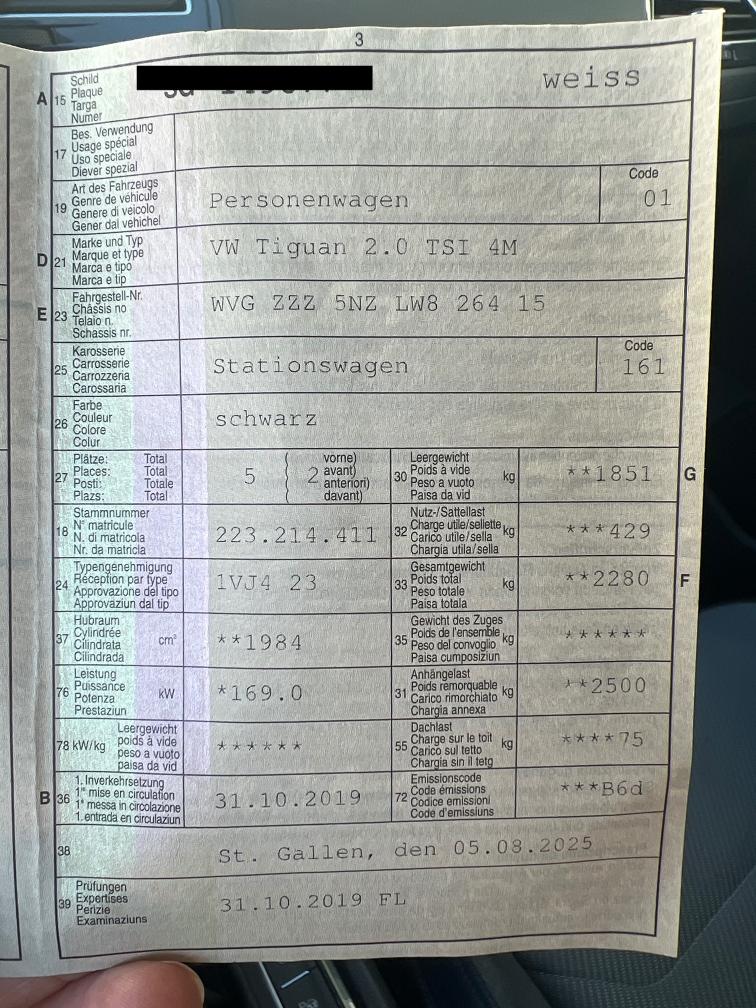 3
A 15 Schild
Plaque
Targa
Numer
weiss
17 Bes. Verwendung
Usage spécial
Uso speciale
Diever spezial
19 Art des Fahrzeugs
Genre de véhicule
Genere di veicolo
Gener dal vehichel
Personenwagen
Code
01
D 21 Marke und Typ
Marque et type
Marca e tipo
Marca e tip
VW Tiguan 2.0 TSI 4M
E 23 Fahrgestell-Nr.
Châssis no
Telaio n.
Schassis nr.
WVG ZZZ 5NZ LW8 264 15
25 Karosserie
Carrosserie
Carrozzeria
Carossaria
Stationswagen
Code
161
26 Farbe
Couleur
Colore
Colur
schwarz
27 Plätze: Total
Places: Total
Posti: Totale
Plazs: Total
5 ( 2 vorne)
avant)
anteriori)
davant)
30 Leergewicht
Poids à vide
Peso a vuoto
Paisa da vid
kg
**1851 G
18 Stammnummer
N° matricule
N. di matricola
Nr. da matricla
223.214.411
32 Nutz-/Sattellast
Charge utile/sellette
Carico utile/sella
Chargia utila/sella
kg
***429
24 Typengenehmigung
Réception par type
Approvazione del tipo
Approvaziun dal tip
1VJ4 23
33 Gesamtgewicht
Poids total
Peso totale
Paisa totala
kg
**2280 F
37 Hubraum
Cylindrée
Cilindrata
Cilindrada
cm³
**1984
35 Gewicht des Zuges
Poids de l'ensemble
Peso del convoglio
Paisa cumposiziun
kg
******
76 Leistung
Puissance
Potenza
Prestaziun
kW
*169.0
31 Anhängelast
Poids remorquable
Carico rimorchiato
Chargia annexa
kg
**2500
78 kW/kg Leergewicht
poids à vide
peso a vuoto
paisa da vid
******
55 Dachlast
Charge sur le toit
Carico sul tetto
Chargia sin il tetg
kg
****75
B 36 1. Inverkehrsetzung
1re mise en circulation
1a messa in circolazione
1. entrada en circulaziun
31.10.2019
72 Emissionscode
Code émissions
Codice emissioni
Code d'emissiuns
***B6d
38
St. Gallen, den 05.08.2025
39 Prüfungen
Expertises
Perizie
Examinaziuns
31.10.2019 FL